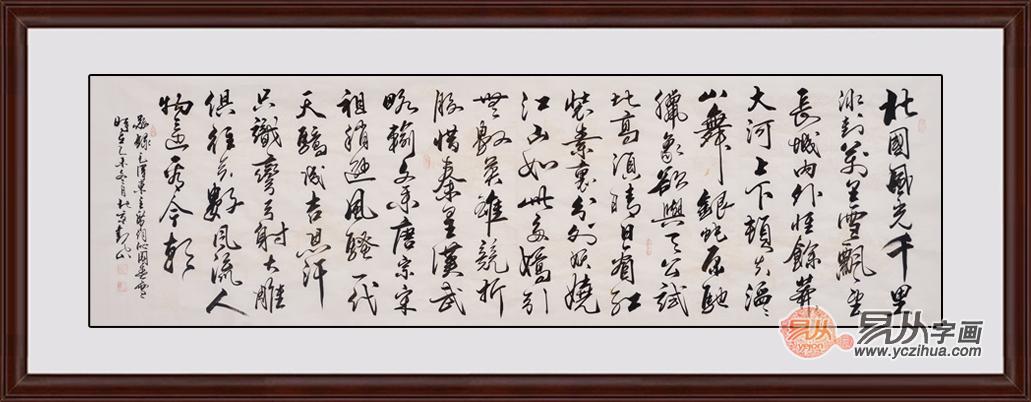 北國風光千里
冰封萬里雪飄望
長城內外惟餘莽〻
大河上下頓失滔〻
山舞銀蛇原馳
臘象欲與天公試
比高須晴日看紅
裝素裹分外妖嬈
江山如此多嬌引
無數英雄競折
腰惜秦皇漢武
略輸文采唐宗宋
祖稍遜風騷一代
天驕成吉思汗
只識彎弓射大雕
俱往矣數風流人
物還看今朝
錄毛澤東主席詞沁園春雪
時在乙未冬月北京
易从字画
yejon
www.yczihua.com